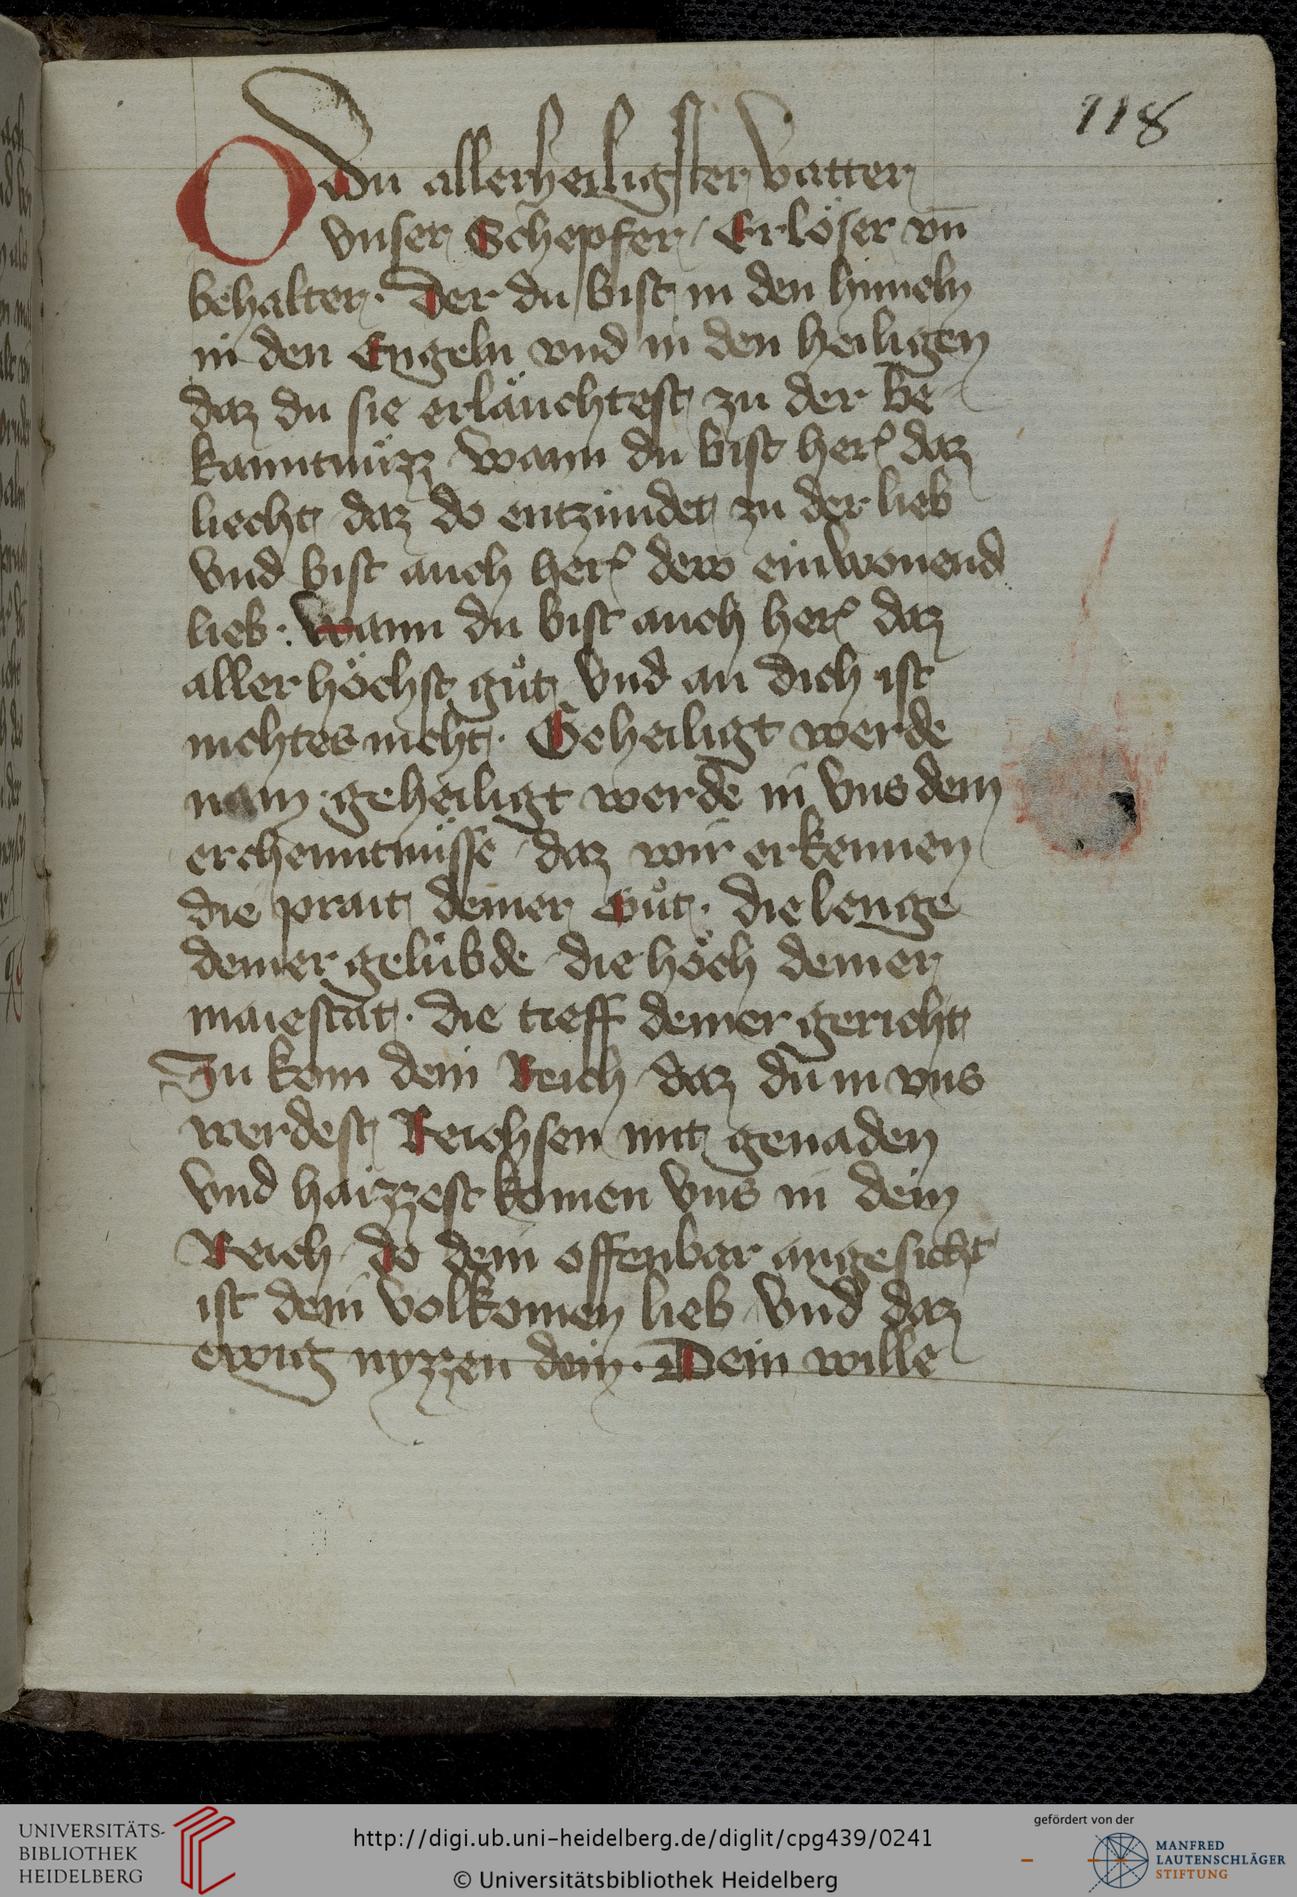 118
O du allerheiligster vatter
vnser Schepfer / Erlöser vn̄
behalter · Der du bist in den himeln
in den Engeln vnd in den heiligen
daz du sie erläuchtest zu der be
kanntnüzz wann du bist her² daz
liecht daz do entzündet zu der lieb
vnd bist auch her² dew einwonend
lieb · wann du bist auch her² daz
aller höchst gůt vnd an dich ist
nichtes nicht · Geheiligt werde
nam · geheiligt werde in vns dem
erchenntnüsse daz wir erkennen
die prait deiner Gůt · die lenge
deiner gelübde die höch deiner
maiestat · die tieff deiner gericht
Zu kom dein Reich daz du in vns
werdest Reichsen mit genaden
vnd haizzest komen vns in dein
Reich do dein offenbar angesicht
ist dein volkomen lieb vnd daz
ewig nyzzen dein · Dein wille
UNIVERSITÄTS-
BIBLIOTHEK
HEIDELBERG
http://digi.ub.uni-heidelberg.de/diglit/cpg439/0241
© Universitätsbibliothek Heidelberg
gefördert von der
MANFRED
LAUTENSCHLÄGER
STIFTUNG